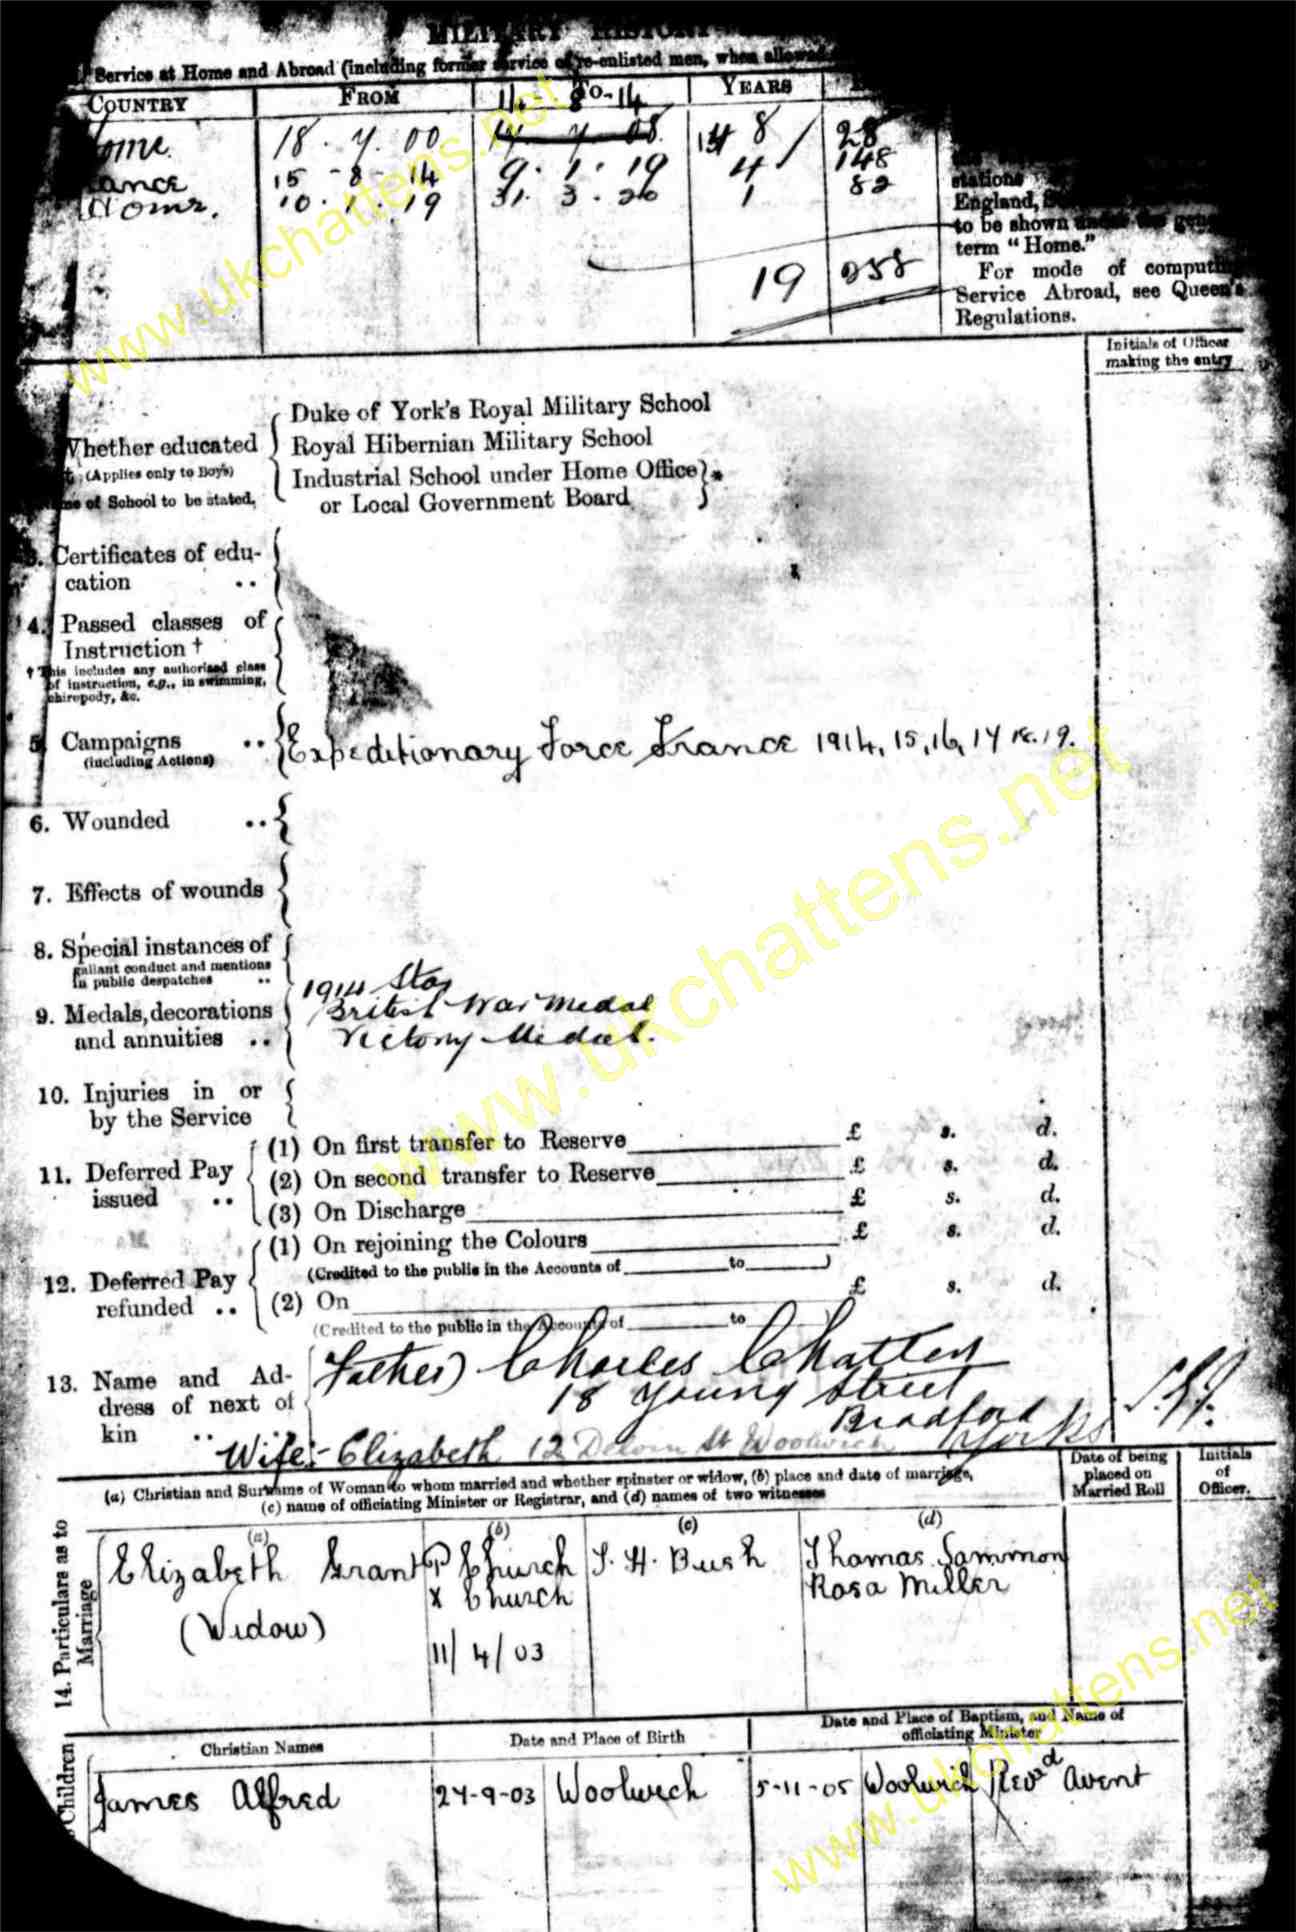 MILITARY HISTORY
Service at Home and Abroad (including former service of re-enlisted men, when allowed
COUNTRY FROM TO YEARS
14 - 8 - 14
ome 18 . 7 . 00 14 . 7 . 08 8 28
ance 15 - 8 - 14 9 . 1 . 19 4 148
Home. 10 . 1 . 19 31 . 3 . 20 1 82
19 258
stations
England,
to be shown
term "Home."
For mode of
Service Abroad, see Queen's
Regulations.
Initials of Officer
making the entry
Whether educated
(Applies only to Boys)
of School to be stated,
Duke of York's Royal Military School
Royal Hibernian Military School
Industrial School under Home Office
or Local Government Board
*
3. Certificates of edu-
cation ..
4. Passed classes of
Instruction †
† This includes any authorised class
of instruction, e.g., in swimming,
chiropody, &c.
5. Campaigns ..
(including Actions)
Expeditionary Force France 1914, 15, 16, 17 18. 19.
6. Wounded ..
7. Effects of wounds
8. Special instances of
gallant conduct and mentions
in public despatches ..
9. Medals, decorations
and annuities ..
1914 Star
British War Medal
Victory Medal.
10. Injuries in or
by the Service
11. Deferred Pay
issued ..
(1) On first transfer to Reserve £ s. d.
(2) On second transfer to Reserve £ s. d.
(3) On Discharge £ s. d.
12. Deferred Pay
refunded ..
(1) On rejoining the Colours £ s. d.
(Credited to the public in the Accounts of to )
(2) On £ s. d.
(Credited to the public in the Accounts of to
13. Name and Ad-
dress of next of
kin ..
Father) Charles Chatten
18 Young Street
Bradford
Yorks
Wife:- Elizabeth 12 St Woolwich
14. Particulars as to
Marriage
(a) Christian and Surname of Woman to whom married and whether spinster or widow, (b) place and date of marriage,
(c) name of officiating Minister or Registrar, and (d) names of two witnesses
Date of being
placed on
Married Roll
Initials
of
Officer.
(a) (b) (c) (d)
Elizabeth Grant
(Widow)
P Church
x Church
11/4/03
J. H. Bush
Thomas Sammon
Rosa Miller
Children
Christian Names
Date and Place of Birth
Date and Place of Baptism, and Name of
officiating Minister
James Alfred 27-9-03 Woolwich 5-11-05 Woolwich Revd Avent
www.ukchattens.net
www.ukchattens.net
www.ukchattens.net